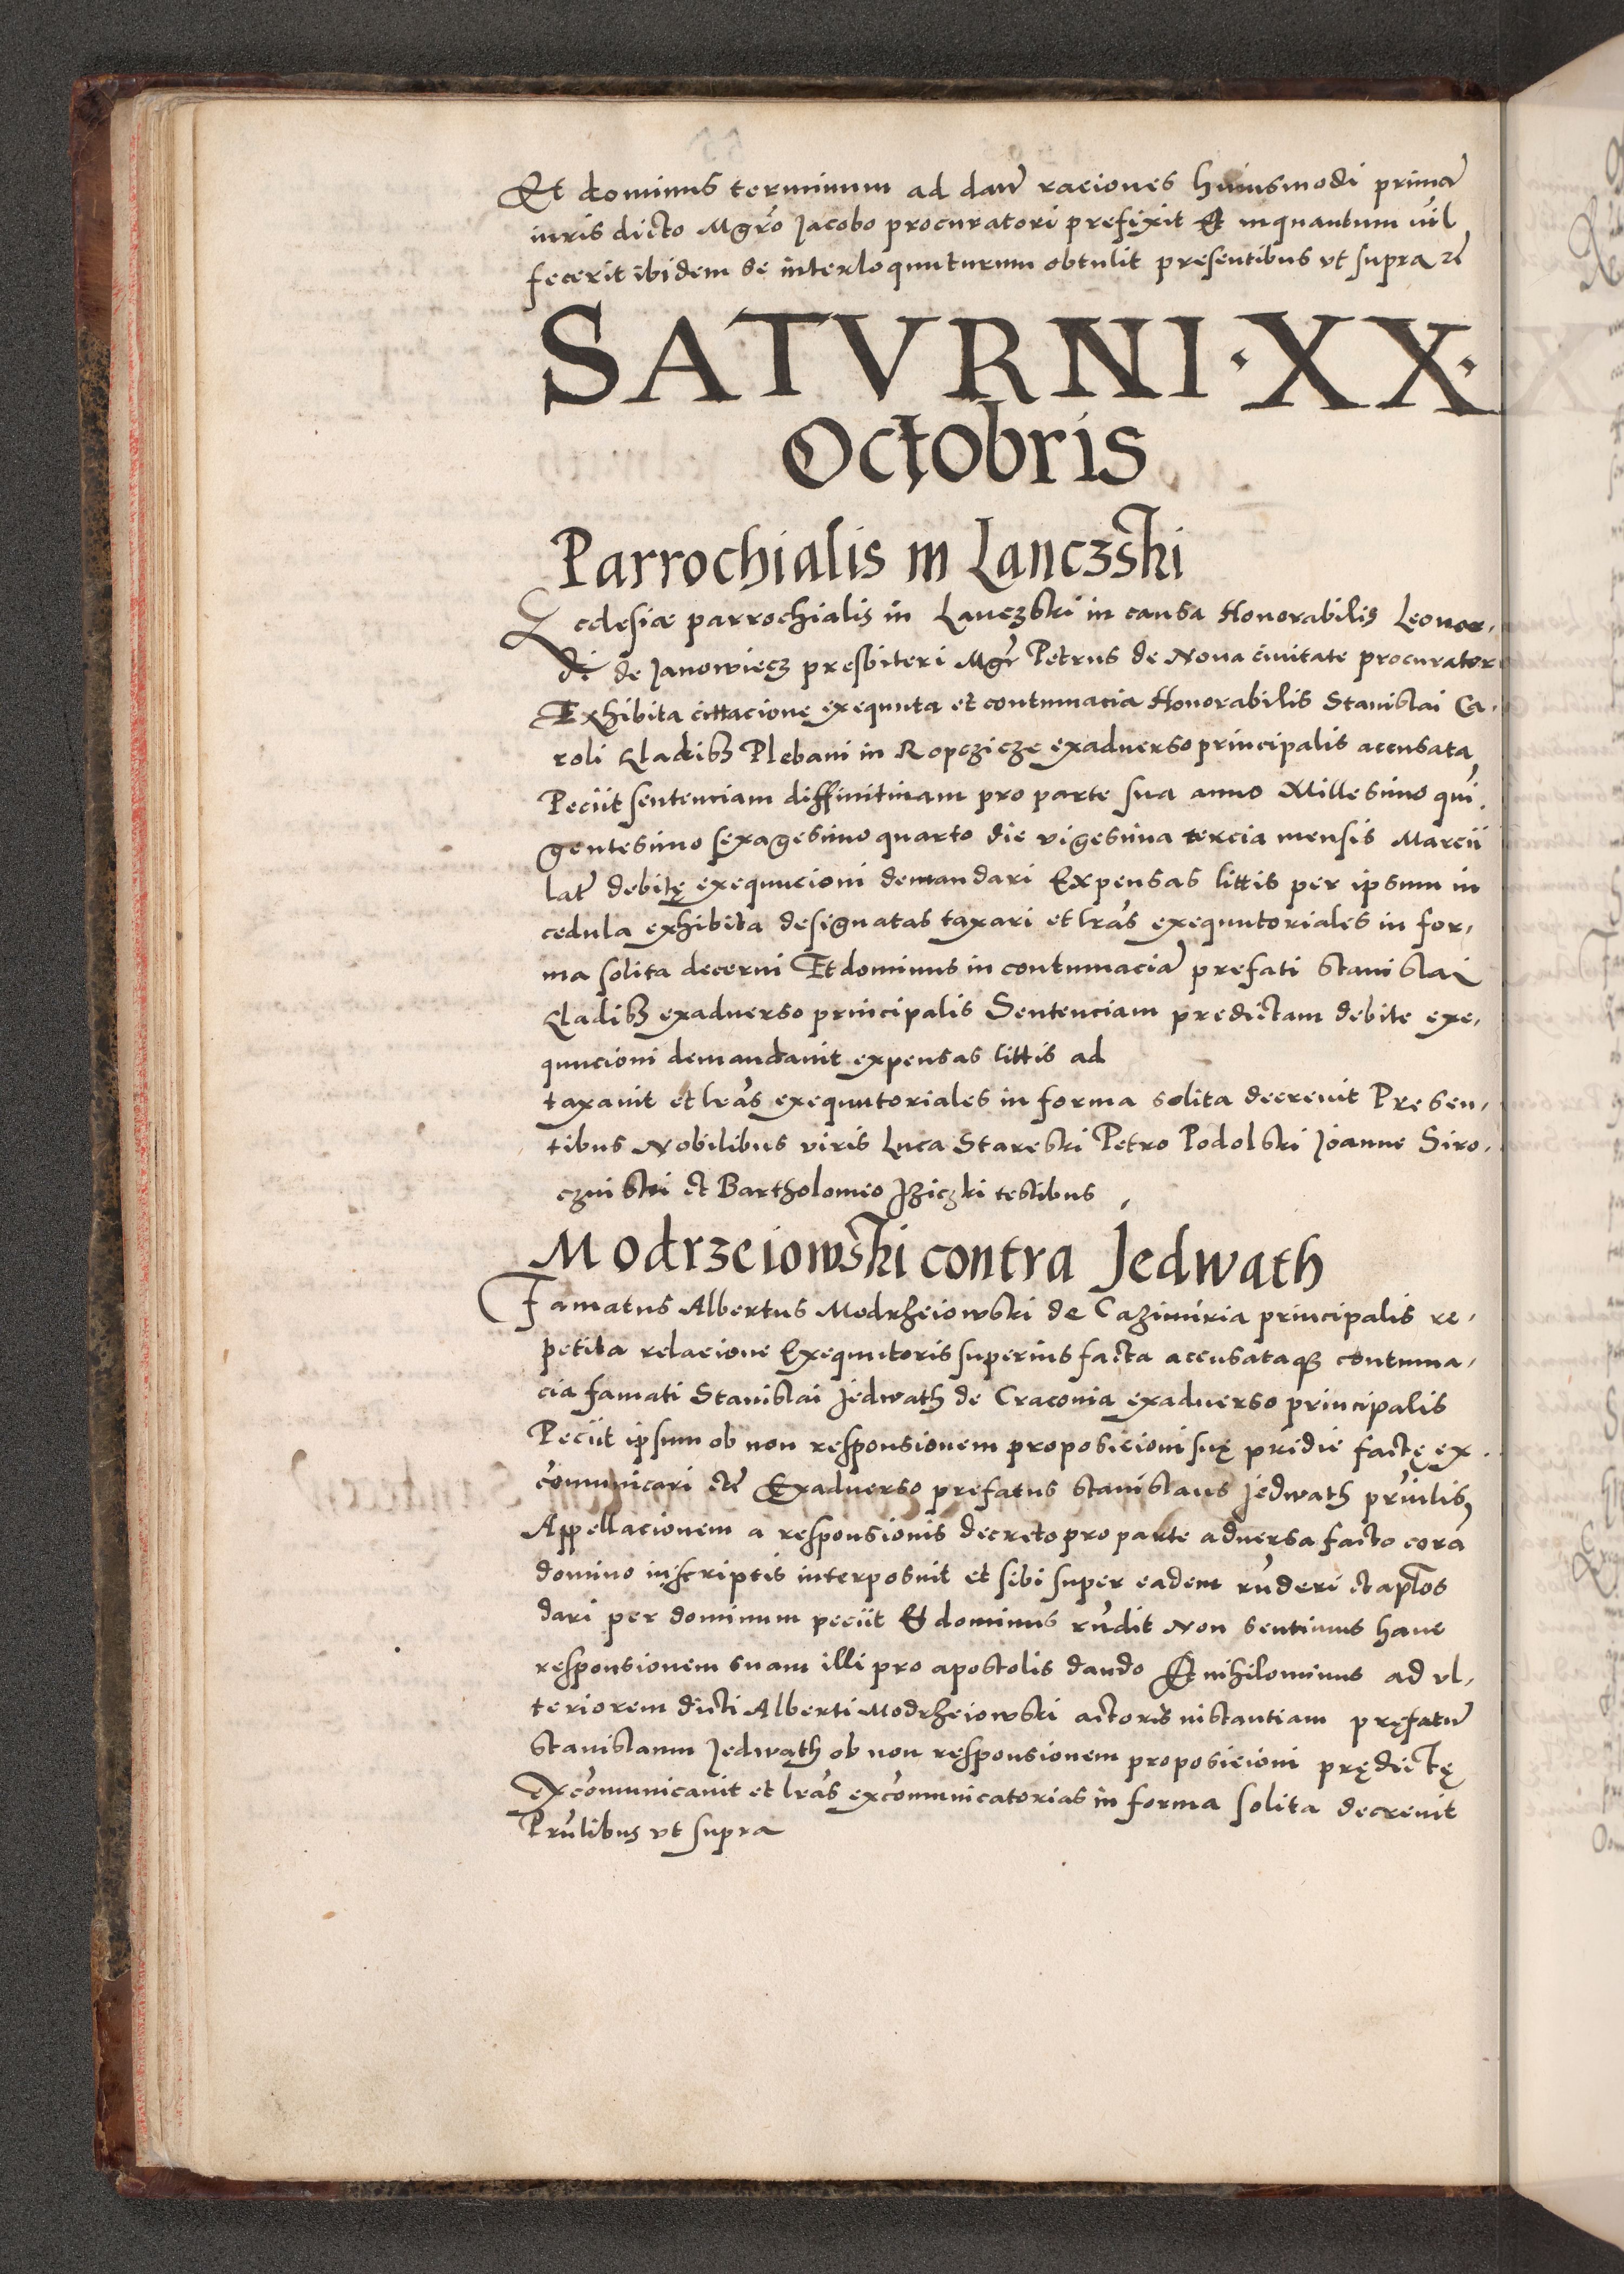 Et dominus terminum ad danᷣ raciones huiusmodi primã
iuris dicto Mgr̃o Jacobo procuratori prefixit Et inquantum vĩl
fecerit ibidem se interloquuturum obtulit presentibus vt supra
SATVRNI·XX·
Octobris
Parrochialis in Lanczski
Ecclesiæ parrochialis in Lanczski in causa Honorabilis Leonar,
di de Janowiecz presbiteri Mgr̃ Petrus de Noua ciuitate procurator
Exhibita cittacione exequuta et contumacia Honorabilis Stanislai Ca,
roli Kladisz Plebani in Ropczicze exaduerso principalis accusata
Peciit sentenciam diffinitiuam pro parte sua anno Millesimo qui,
gentesimo sexagesimo quarto die vigesima tercia mensis Marcii
latã debitę exequucioni demandari Expensas littis per ipsum in
cedula exhibita designatas taxari et lr̃as exequutoriales in for,
ma solita decerni Et dominus in contumaciã prefati Stanislai
Kladisz exaduerso principalis Sentenciam predictam debite exe,
quucioni demandauit expensas littis ad
taxauit et lr̃as exequutoriales in forma solita decreuit Presen,
tibus Nobilibus viris Luca Stareski Petro Podolski Joanne Siro,
czniski et Bartholomeo Jziczki testibus
Modrzeiowski contra Jedwath
Famatus Albertus Modrzeiowski de Cazimiria principalis re,
petita relacione Exequutoris superius facta accusataqꝫ contuma,
cia famati Stanislai Jedwath de Craconia exaduerso principalis
Peciit ipsum ob non responsionem proposicioni suę pridie factę ex,
cõmunicari etc̃ Exaduerso prefatus Stanislaus Jedwath pr̃nlis,
Appellacionem a responsionis decreto pro parte aduersa facto corã
domino inscriptis interposuit et sibi super eadem rñderi et apl̃os
dari per dominum peciit Et dominus rñdit Non sentimus hanc
responsionem suam illi pro apostolis dando Et nihilominus ad vl,
teriorem dicti Alberti Modrzeiowski actoris instantiam pręfatũ
Stanislaum Jedwath ob non responsionem proposicioni prędictę
Excõmunicauit et lr̃as excõmunicatorias in forma solita decreuit
Pr̃ntibus vt supra